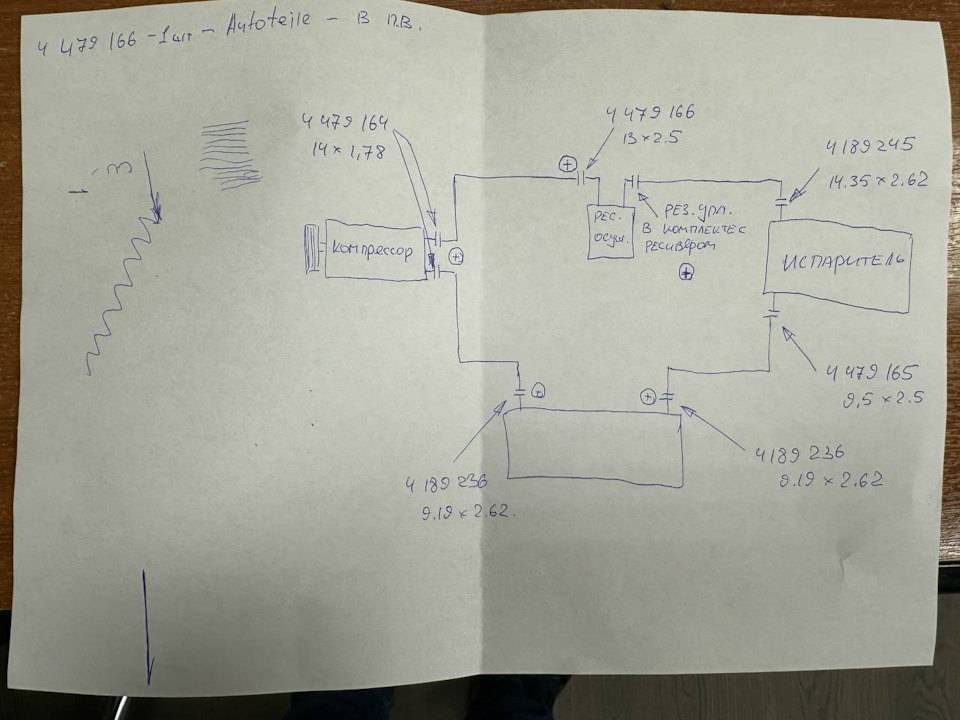 4 479 166 - 1 шт - Autoteile - В П.В.
4 479 164
14 × 1,78
4 479 166
13 × 2.5
4189245
14.35 × 2.62
3
1
КОМПРЕССОР
РЕС.
ОСУШ.
РЕЗ. УПЛ.
В КОМПЛЕКТЕ С
РЕСИВЕРОМ
ИСПАРИТЕЛЬ
4 479 165
9,5 × 2.5
4 189 236
9.19 × 2.62.
4189 236
9.19 × 2.62